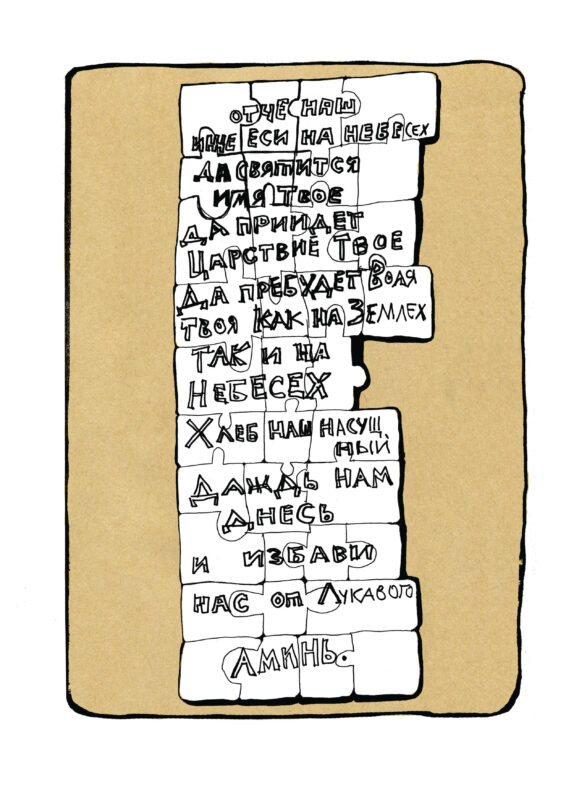 ОТЧЕ НАШ
ИЖЕ ЕСИ НА НЕБЕСЕХ
ДА СВЯТИТСЯ
ИМЯ ТВОЕ
ДА ПРИИДЕТ
ЦАРСТВИЕ ТВОЕ
ДА ПРЕБУДЕТ ВОЛЯ
ТВОЯ КАК НА ЗЕМЛЕХ
ТАК И НА
НЕБЕСЕХ
ХЛЕБ НАШ НАСУЩ
НЫЙ
ДАЖДЬ НАМ
ДНЕСЬ
И ИЗБАВИ
НАС ОП ЛУКАВОГО
АМИНЬ.